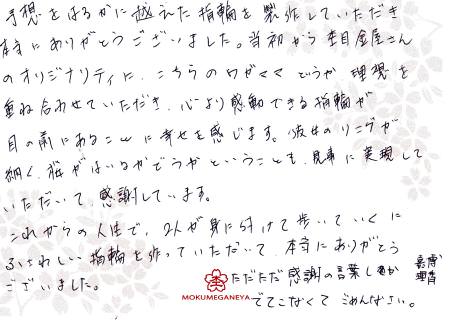 予想をはるかに越えた指輪を製作していただき
本当にありがとうございました。当初から杢目金屋さん
のオリジナリティに、こちらのワガママというか理想を
重ね合わせていただき、心より感動できる指輪が
目の前にあることに幸せを感じます。彼女のリングが
細く、桜がはいるかどうかということも、見事に実現して
いただいて、感謝しています。
これからの人生で、2人が身に付けて歩いていくに
ふさわしい指輪を作っていただいて、本当にありがとう
ございました。
ただただ感謝の言葉しか
でてこなくてごめんなさい。
MOKUMEGANEYA